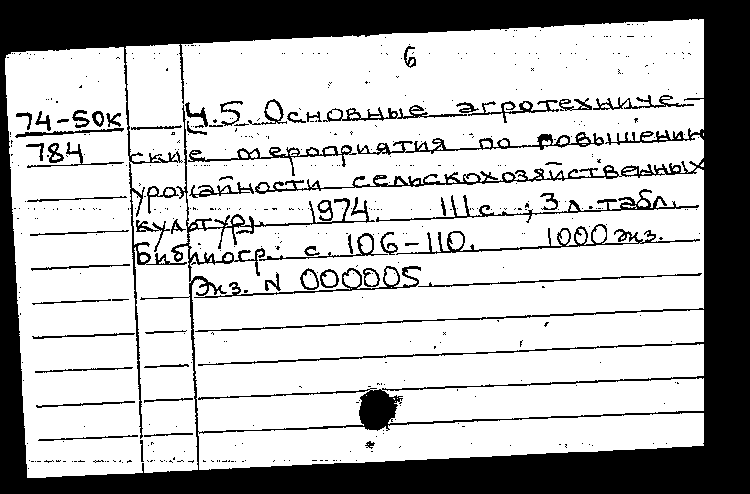 6
74-50к Ч.5. Основные агротехниче-
784 ские мероприятия по повышению
урожайности сельскохозяйственных
культур. 1974. 111 с.; 3 л. табл.
Библиогр.: с. 106-110. 1000 экз.
Экз. N 000005.